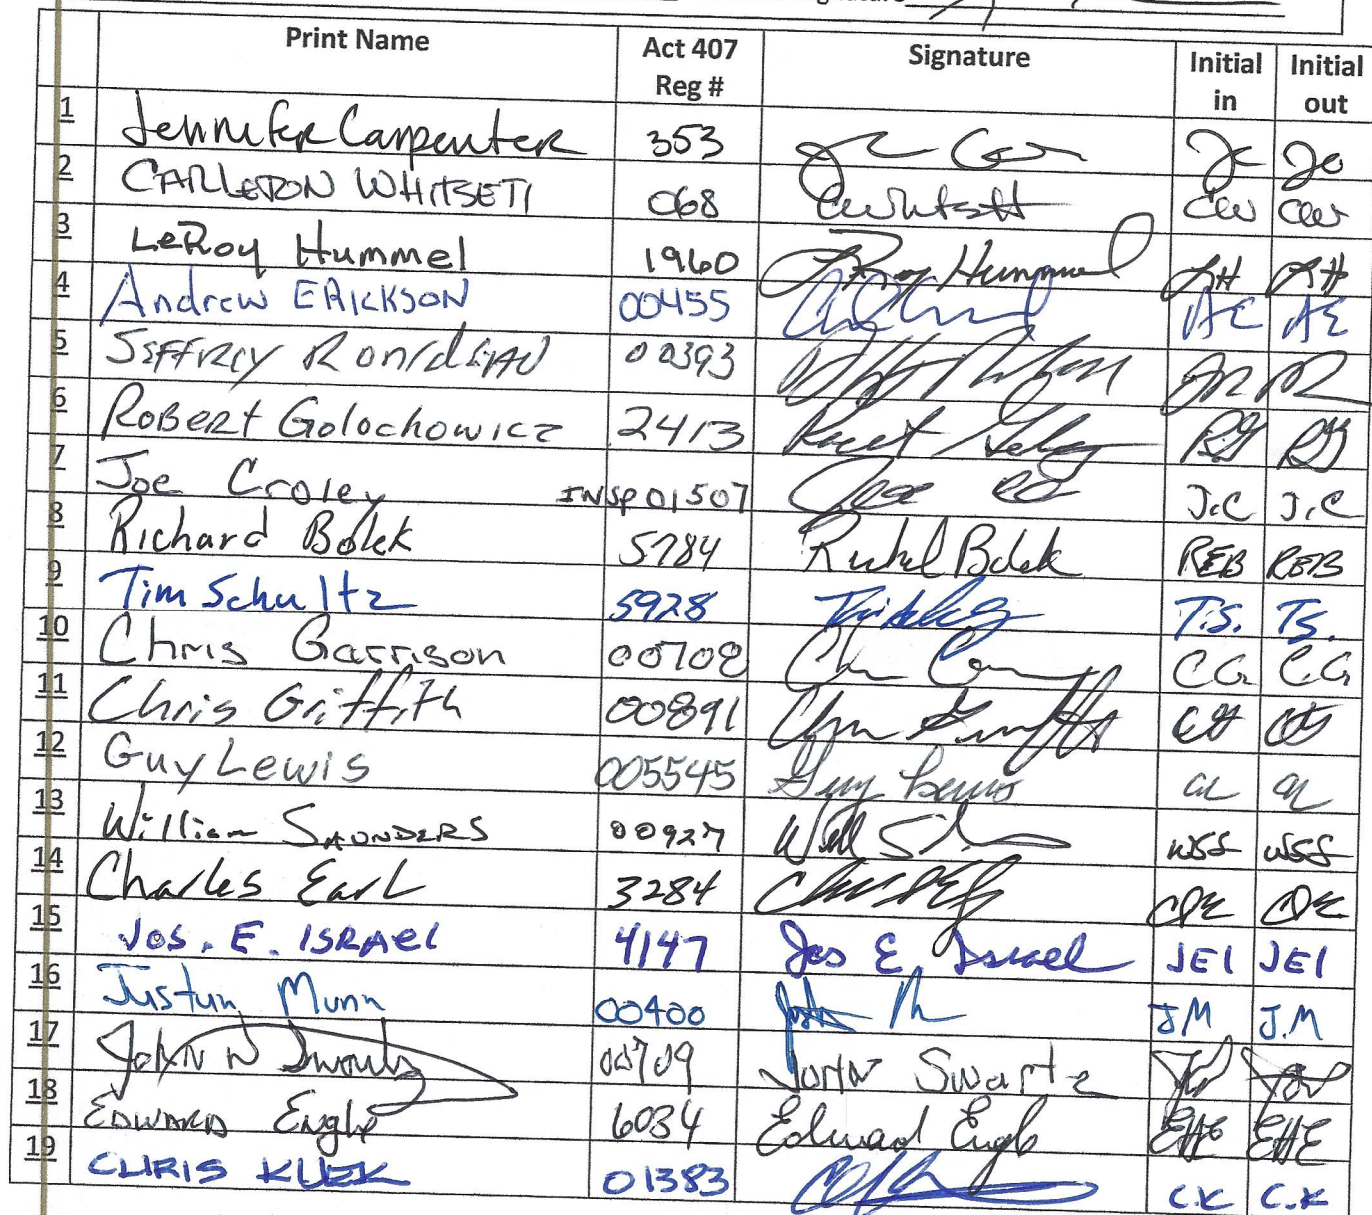 Print Name Act 407 Reg # Signature Initial in Initial out
1 Jennifer Carpenter 353 JC
2 CARLETON WHITSETT 068 CWhitsett CW CW
3 LeRoy Hummel 1960 LRoy Hummel LH LH
4 Andrew ERICKSON 00455 AE AE
5 00393 JR JR
6 Robert Golochowicz 2413 RG RG
7 Joe Croley INSP01507 J.C J.C
8 Richard Bolek 5784 Richard Bolek REB REB
9 Tim Schultz 5928 T.S. TS.
10 Chris Garrison 00708 C G C.G
11 Chris Griffith 00891 Chris Griffith CG CG
12 Guy Lewis 005545 Guy Lewis GL GL
13 William SAUNDERS 00927 WSS WSS
14 Charles Earl 3284 CDE CDE
15 JOS. E. ISRAEL 4147 Jos E. Israel JEI JEI
16 Justun Munn 00400 JM J.M
17 John W Swartz 00709 John Swartz
18 EDWARD Engle 6034 Edward Engle EHE EHE
19 CHRIS KUEK 01383 C.K C.K